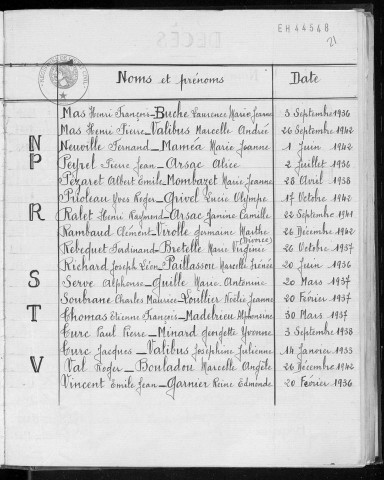 EH 44548
21
Noms et prénoms Date
Mas Henri François_Buche Laurence Marie Jeanne 3 Septembre 1936
Mas Henri Pierre_Valibus Marcelle Andrée 26 Septembre 1942
N Neuville Fernand_Maméa Marie Jeanne 1 Juin 1942
P Peyrel Pierre Jean_Arsac Alice 2 Juillet 1936
Pézaret Albert Emile_Mombazet Marie Jeanne 28 Avril 1938
Prioleau Yves Roger_Grivel Lucie Olympe 17 Octobre 1942
R Ralet Henri Raymond_Arsac Janine Camille 22 Septembre 1941
Rambaud Clément_Virolle Germaine Marthe 26 Décembre 1942
(Divorce)
Rebequet Ferdinand_Bretelle Marie Virginie 26 Octobre 1937
Richard Joseph Léon_Paillasson Marcelle Irénée 20 Juin 1936
S Serve Alphonse_Guille Marie Antonine 20 Mars 1937
Soubrane Charles Maurice_Loullier Nicole Jeanne 20 Février 1937
T Thomas Etienne François_Madelrieu Alphonsine 30 Mars 1937
Turc Paul Pierre_Minard Georgette Yvonne 3 Septembre 1938
Turc Jacques_Valibus Joséphine Julienne 14 Janvier 1933
V Val Roger_Bouladou Marcelle Angèle 26 Décembre 1942
Vincent Emile Jean_Garnier Reine Edmonde 20 Février 1936